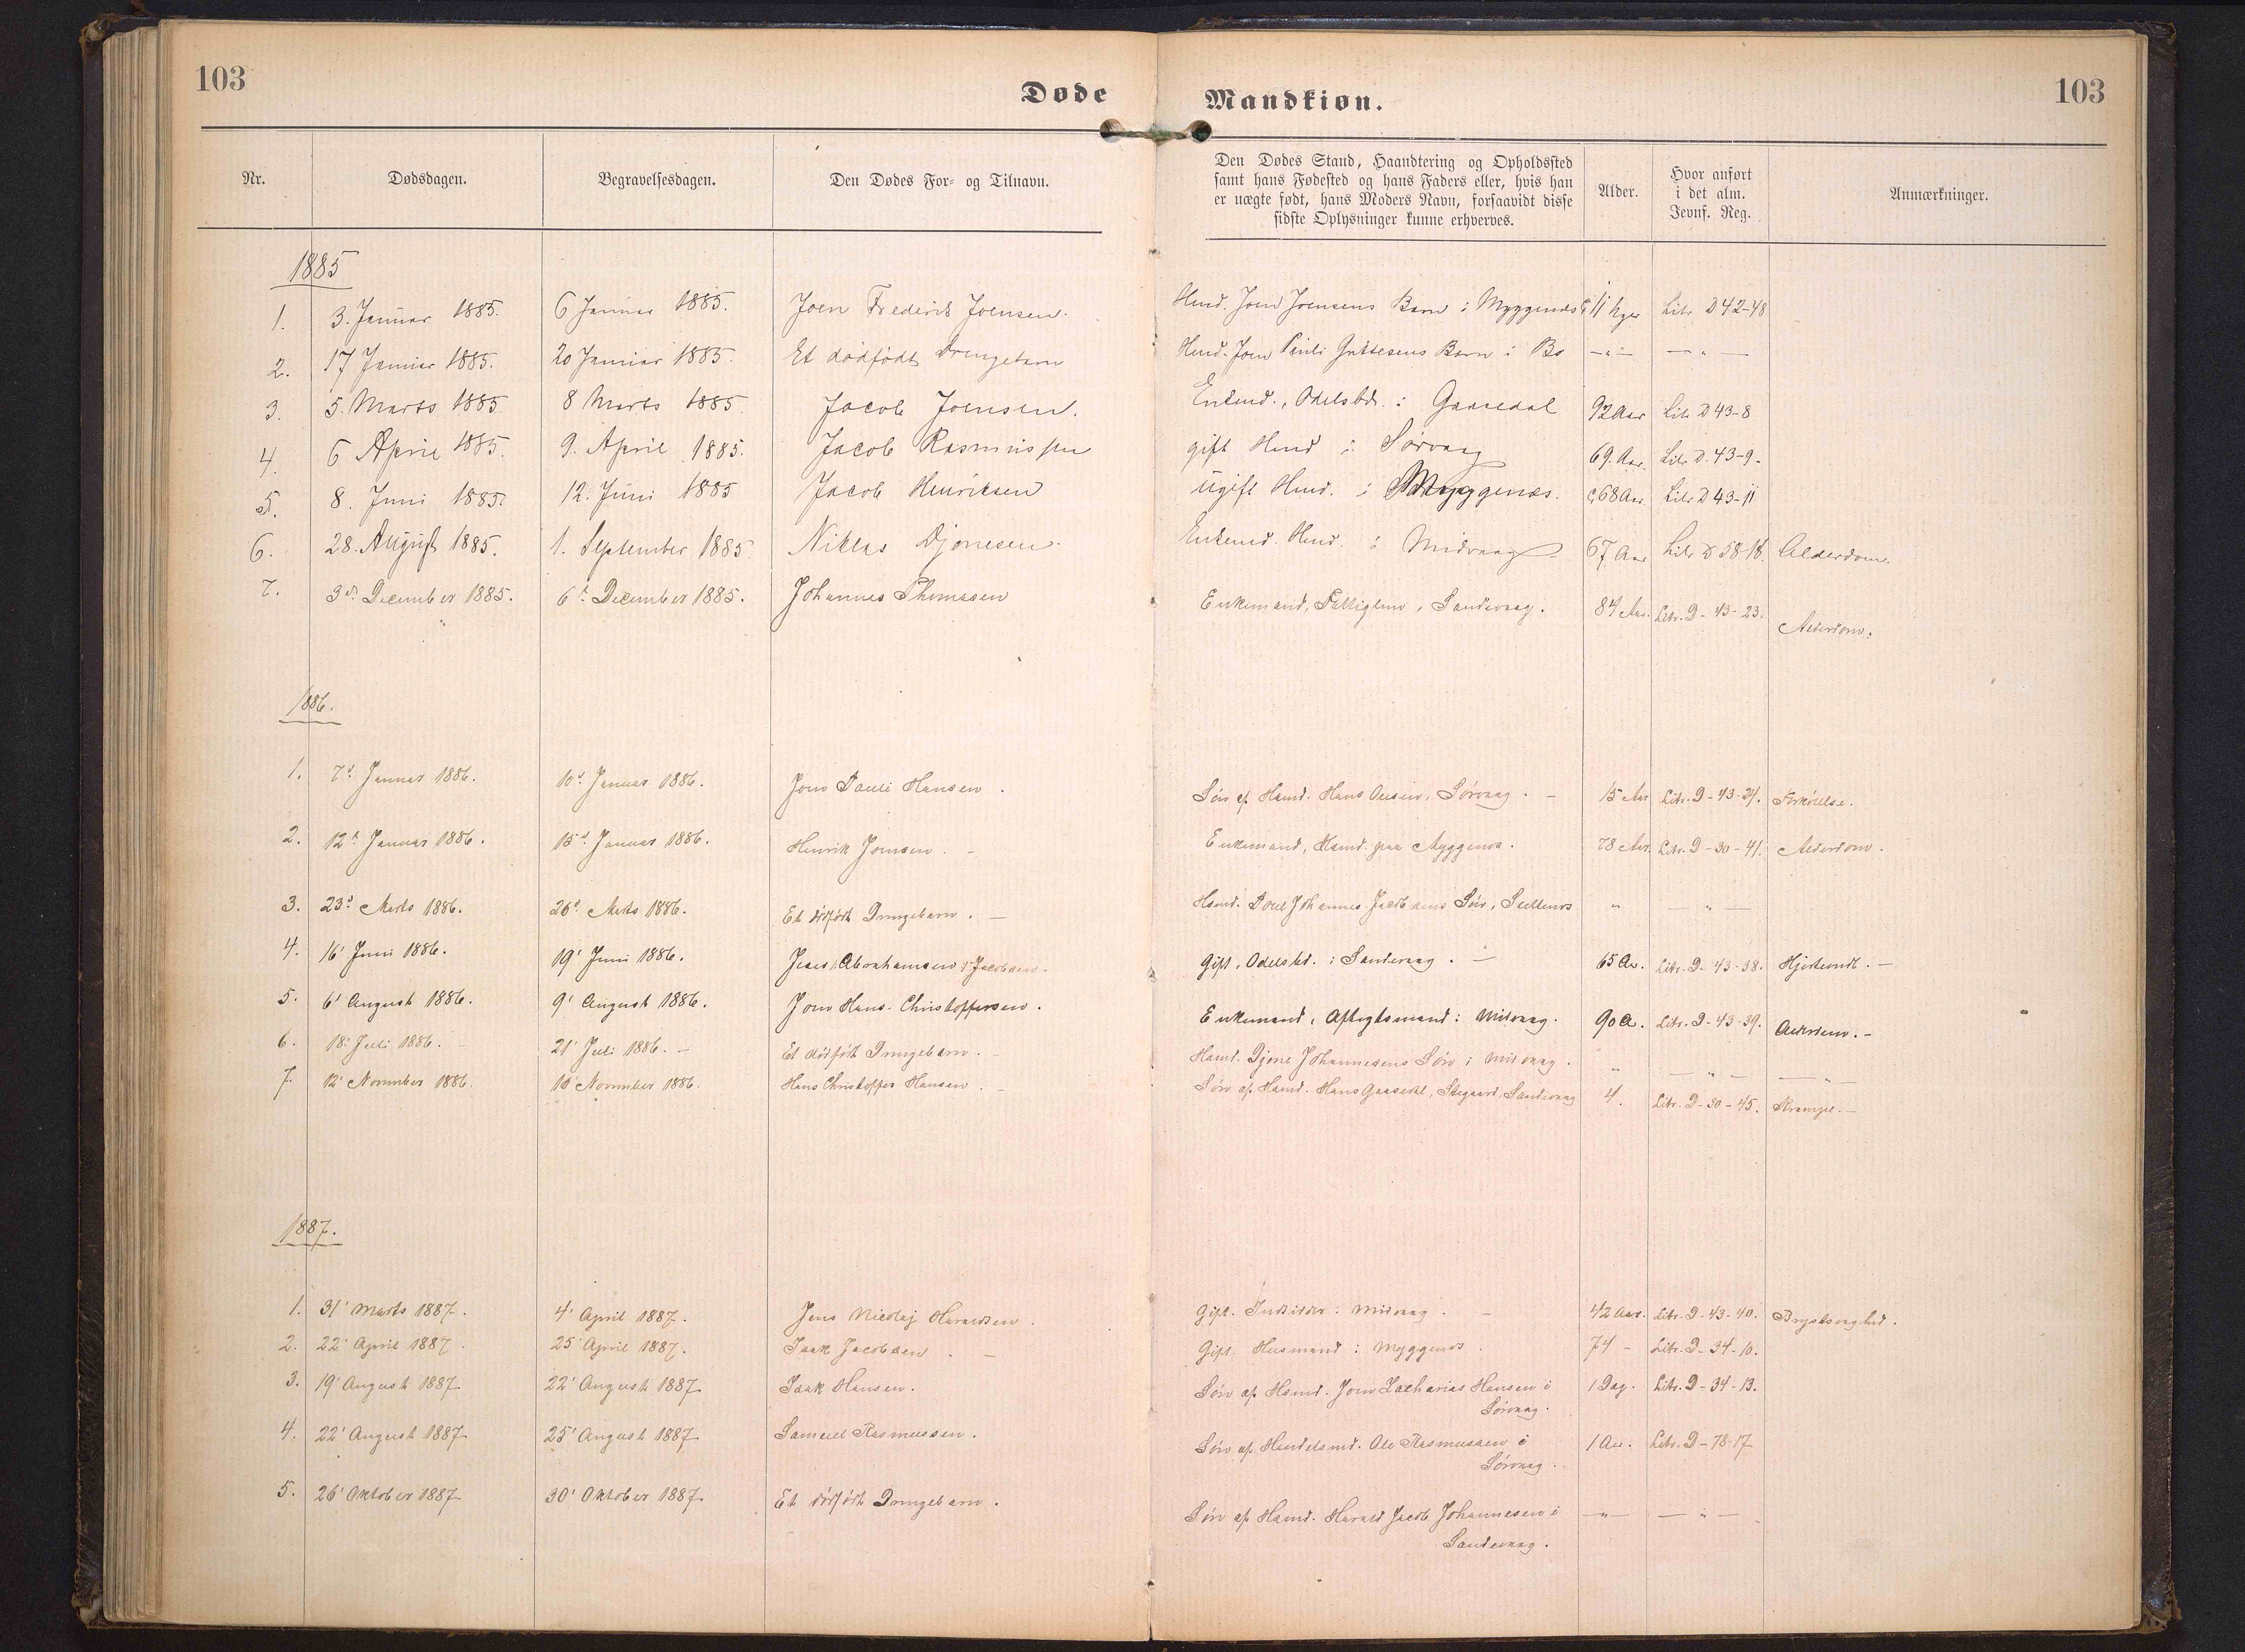 103
Døde
Mandkiøn.
103
Nr.
Dødsdagen.
Begravelsesdagen.
Den Dødes For- og Tilnavn.
Den Dødes Stand, Haandtering og Opholdssted
samt hans Fødested og hans Faders eller, hvis han
er uægte født, hans Moders Navn, forsaavidt disse
sidste Oplysninger kunne erhverves.
Alder.
Hvor anført
i det alm.
Jevnf. Reg.
Anmærkninger.
1885
1. 3. Januar 1885. 6 Januar 1885. Joen Frederik Joensen. Hmd. Joen Joensens Barn i Myggenæs Litr D 42-48
2. 17 Januar 1885. 20 Januar 1885. Et dødfødt Drengebarn Hmd. Joen Pauli Guttesens Barn i Bø -"- - " -
3. 5. Marts 1885. 8 Marts 1885. Jacob Joensen. Enkmd., Odelsbd. i Gaasedal 92 Aar Litr D 43-8
4. 6 April 1885. 9. April 1885. Jacob Rasmussen gift Hmd i Sørvaag 69. Aar. Litr D. 43-9-
5. 8. Juni 1885. 12. Juni 1885 Jacob Henriksen ugift Hmd. i Myggenæs. 68 Aar. Litr D 43-11
6. 28. August 1885. 1. September 1885 Niklas Djonesen. Enkemd. Hmd. i Midvaag 67 Aar Litr D 58-18. Alderdom.
7. 3d. December 1885. 6d. December 1885. Johannes Thomasen Enkemand, Fattiglem, Sandevaag. 84 Aar. Litr. D-43-23. Alderdom.
1886.
1. 7d. Januar 1886. 10d. Januar 1886. Joen Pauli Hansen. Søn af Hsmd. Hans Olesen, Sørvaag. - 15 Aar Litr. D-43-24. Forkølelse.
2. 12d. Januar 1886. 15d. Januar 1886. Henrik Joensen. - Enkemand, Hsmd. paa Myggenæs. 78 Aar. Litr. D-30-41. Alderdom.
3. 23d. Marts 1886. 26d. Marts 1886. Et dødfødt Drengebarn. - Hsmd. Poul Johannes Jacobsens Søn, " - " -
4. 16' Juni 1886. 19' Juni 1886. Abrahamsen Jacobsen. Gift, Odelsbd. i Sandevaag. - 65 Aa. Litr. D-43-38. Hjerteondt. -
5. 6' August 1886. 9' August 1886. Joen Hans Christoffersen. Enkemand, Aftægtsmand i Midvaag. 90 Aa. Litr. D-43-39. Alderdom. -
6. 18' Juli 1886. - 21' Juli 1886. - Et dødfødt Drengebarn. - Hsmd. Djone Johannesens Søn i Midvaag. " - " - - " -
7. 12' November 1886. November 1886. Hans Christoffer Hansen. - Søn af Hsmd. Hans Gaasedal, Stegaard, Sandevaag 4. Litr. D-30-45. Krampe. -
1887.
1. 31' Marts 1887. 4' April 1887. Jens Nicolaj Haraldsen. Gift. Indsidder i Midvaag. - 42 Aar. Litr. D-43-40. Brystsvaghed.
2. 22' April 1887. 25' April 1887. Isak Jacobsen. - Gift. Husmand i Myggenæs. 74 - Litr. D-34-10.
3. 19' August 1887. 22' August 1887. Isak Hansen. Søn af Hsmd. Joen Zacharias Hansen i 1 Dag. Litr. D-34-13.
Sørvaag.
4. 22' August 1887. 25' August 1887. Samuel Rasmussen. Søn af Handelsmd. Ole Rasmussen i 1 Aar. Litr. D-78-17
Sørvaag.
5. 26' Oktober 1887. 30' Oktober 1887. Et dødfødt Drengebarn. Søn af Hsmd. Harald Jacob Johannesen i -"- - " -
Sandevaag.